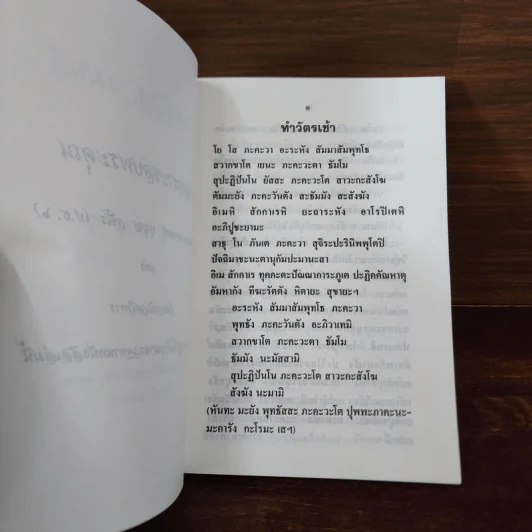 ทำวัตรเช้า
โย โส ภะคะวา อะระหัง สัมมาสัมพุทโธ
สวากขาโต เยนะ ภะคะวะตา ธัมโม
สุปะฏิปันโน ยัสสะ ภะคะวะโต สาวะกะสังโฆ
ตัมมะยัง ภะคะวันตัง สะธัมมัง สะสังฆัง
อิเมหิ สักกาเรหิ ยะถาระหัง อาโรปิเตหิ
อะภิปูชะยามะ
สาธุ โน ภันเต ภะคะวา สุจิระปะรินิพพุโตปิ
ปัจฉิมาชะนะตานุกัมปะมานะสา
อิเม สักกาเร ทุคคะตะปัณณาการะภูเต ปะฏิคคัณหาตุ
อัมหากัง ทีฆะรัตตัง หิตายะ สุขายะฯ
อะระหัง สัมมาสัมพุทโธ ภะคะวา
พุทธัง ภะคะวันตัง อะภิวาเทมิ
สวากขาโต ภะคะวะตา ธัมโม
ธัมมัง นะมัสสามิ
สุปะฏิปันโน ภะคะวะโต สาวะกะสังโฆ
สังฆัง นะมามิ
(หันทะ มะยัง พุทธัสสะ ภะคะวะโต ปุพพะภาคะนะ-
มะการัง กะโรมะ เสฯ)